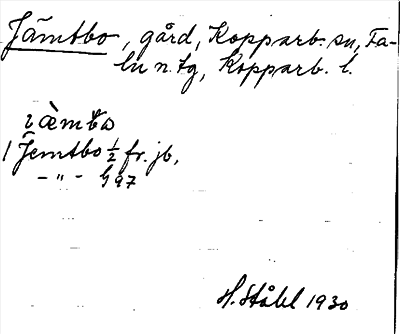 Jämtbo, gård, Kopparb. sn, Fa-
lu n. tg, Kopparb. l.
1 Jemtbo ½ fr. jb,
-"- G97
H. Ståhl 1930